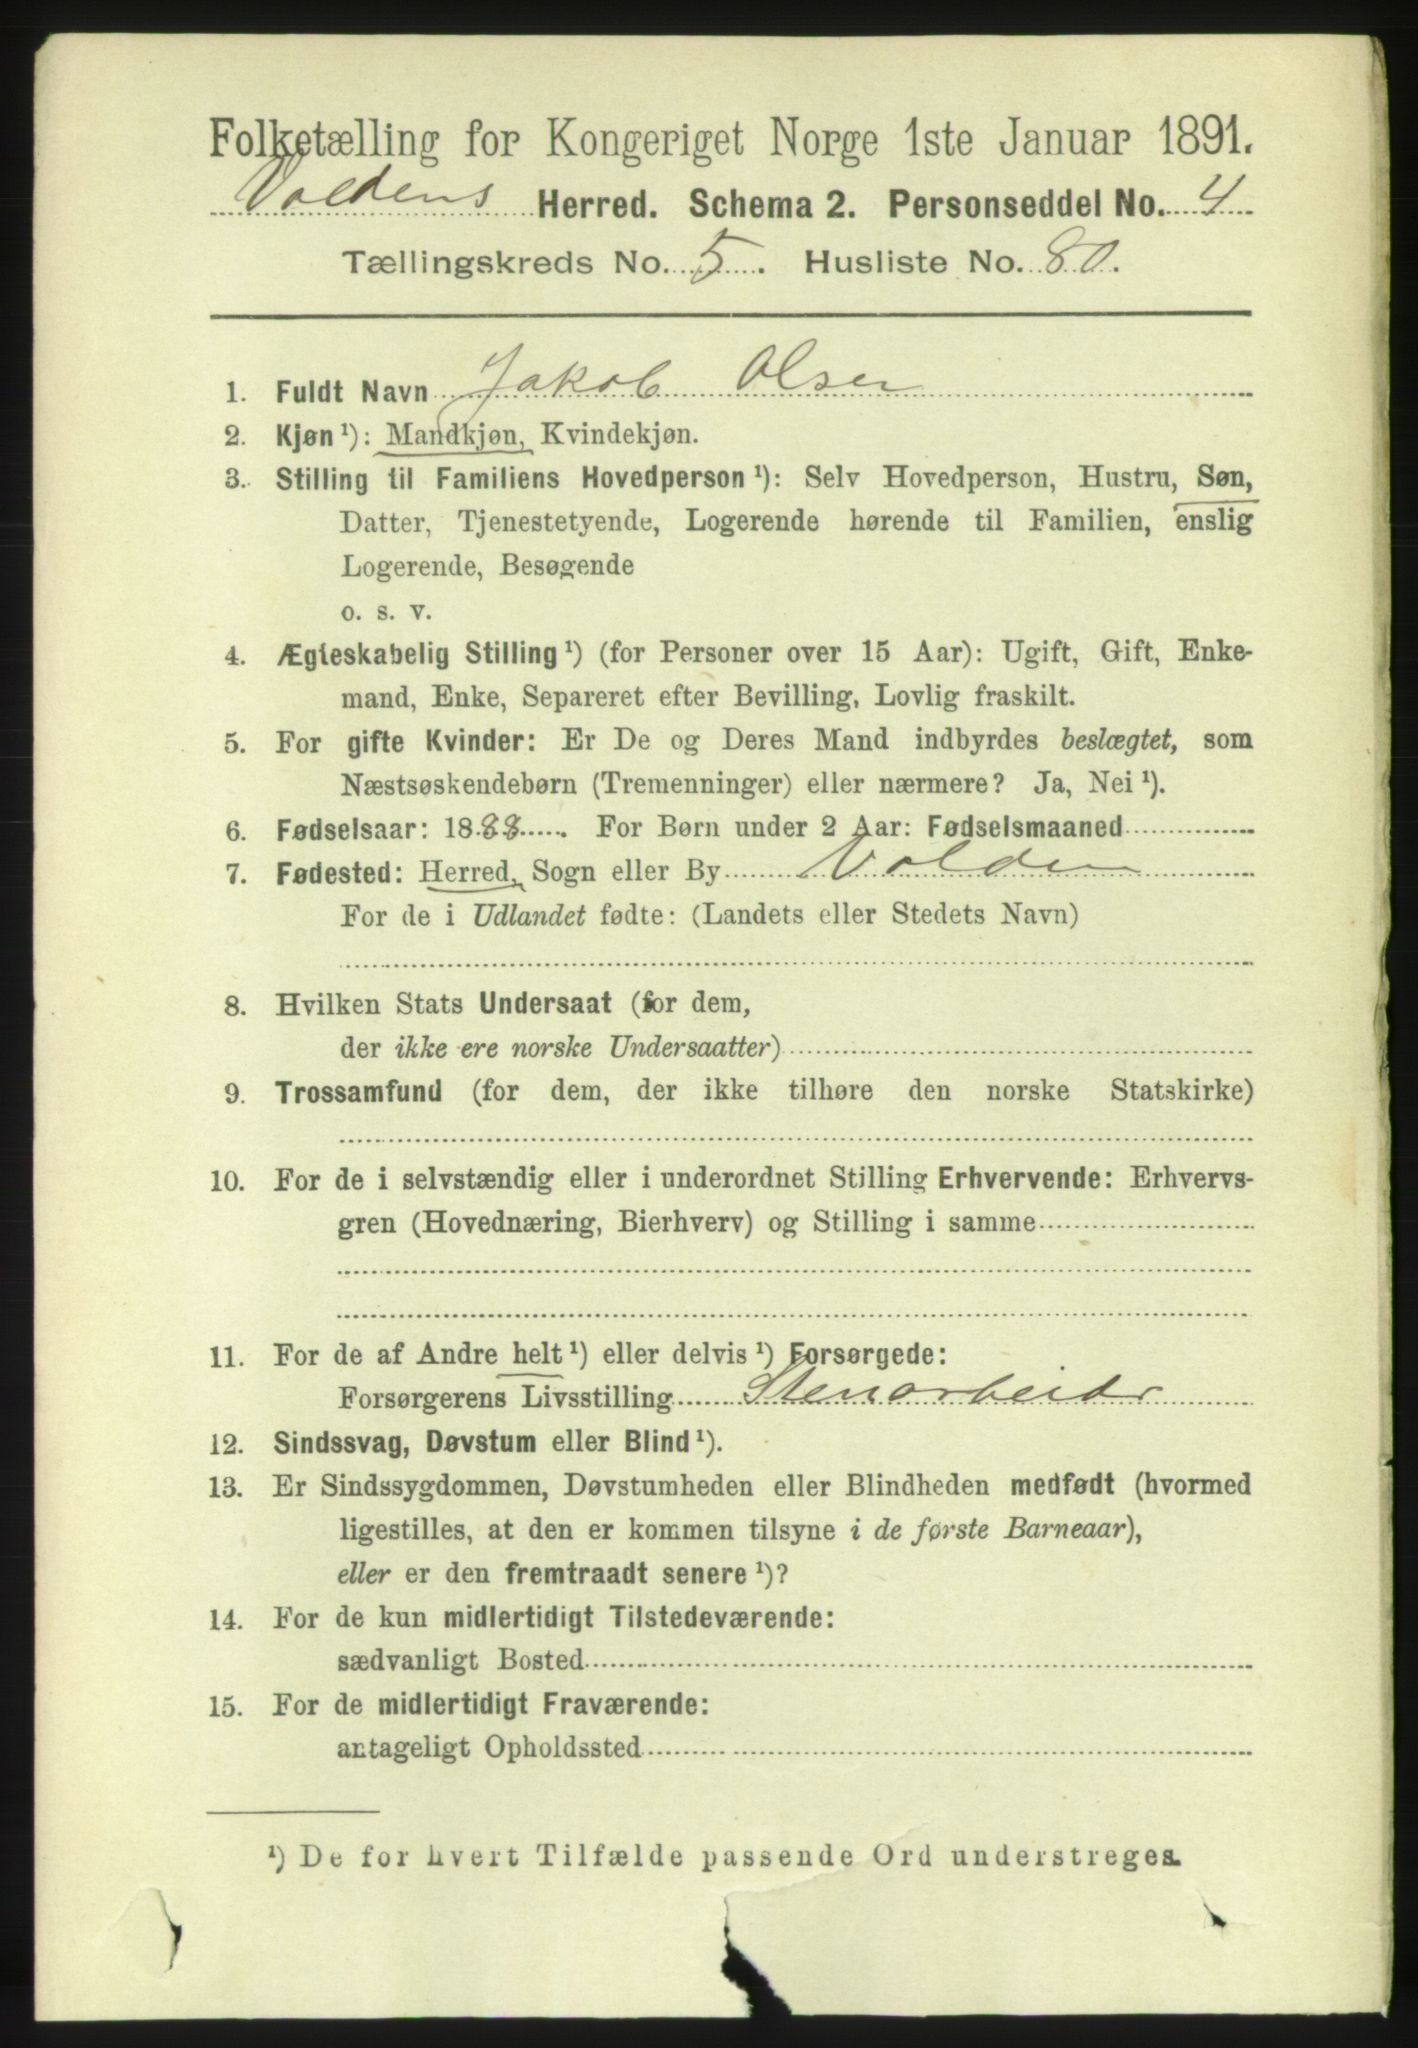 Folketælling for Kongeriget Norge 1ste Januar 1891.
Voldens Herred. Schema 2. Personseddel No. 4
Tællingskreds No. 5. Husliste No. 80.
1. Fuldt Navn Jakob Olsen
2. Kjøn ¹): Mandkjøn, Kvindekjøn.
3. Stilling til Familiens Hovedperson ¹): Selv Hovedperson, Hustru, Søn,
Datter, Tjenestetyende, Logerende hørende til Familien, enslig
Logerende, Besøgende
o. s. v.
4. Ægteskabelig Stilling ¹) (for Personer over 15 Aar): Ugift, Gift, Enke-
mand, Enke, Separeret efter Bevilling, Lovlig fraskilt.
5. For gifte Kvinder: Er De og Deres Mand indbyrdes beslægtet, som
Næstsøskendebørn (Tremenninger) eller nærmere? Ja, Nei ¹).
6. Fødselsaar: 1888. For Børn under 2 Aar: Fødselsmaaned
7. Fødested: Herred, Sogn eller By Volden
For de i Udlandet fødte: (Landets eller Stedets Navn)
8. Hvilken Stats Undersaat (for dem,
der ikke ere norske Undersaatter)
9. Trossamfund (for dem, der ikke tilhøre den norske Statskirke)
10. For de i selvstændig eller i underordnet Stilling Erhvervende: Erhvervs-
gren (Hovednæring, Bierhverv) og Stilling i samme
11. For de af Andre helt ¹) eller delvis ¹) Forsørgede:
Forsørgerens Livsstilling Stenarbeidr
12. Sindssvag, Døvstum eller Blind ¹).
13. Er Sindssygdommen, Døvstumheden eller Blindheden medfødt (hvormed
ligestilles, at den er kommen tilsyne i de første Barneaar),
eller er den fremtraadt senere ¹)?
14. For de kun midlertidigt Tilstedeværende:
sædvanligt Bosted
15. For de midlertidigt Fraværende:
antageligt Opholdssted
¹) De for hvert Tilfælde passende Ord understreges.